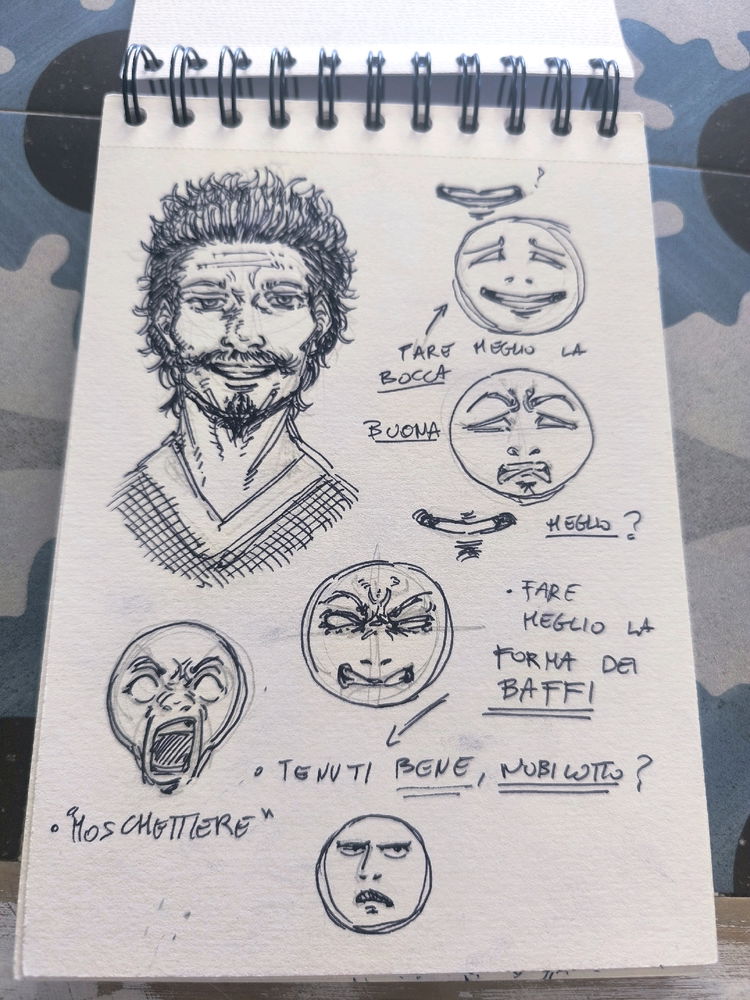 ?
FARE MEGLIO LA
BOCCA
BUONA
MEGLIO?
• FARE
MEGLIO LA
FORMA DEI
BAFFI
• TENUTI BENE, NOBILOTTO?
• "MOSCHETTIERE"